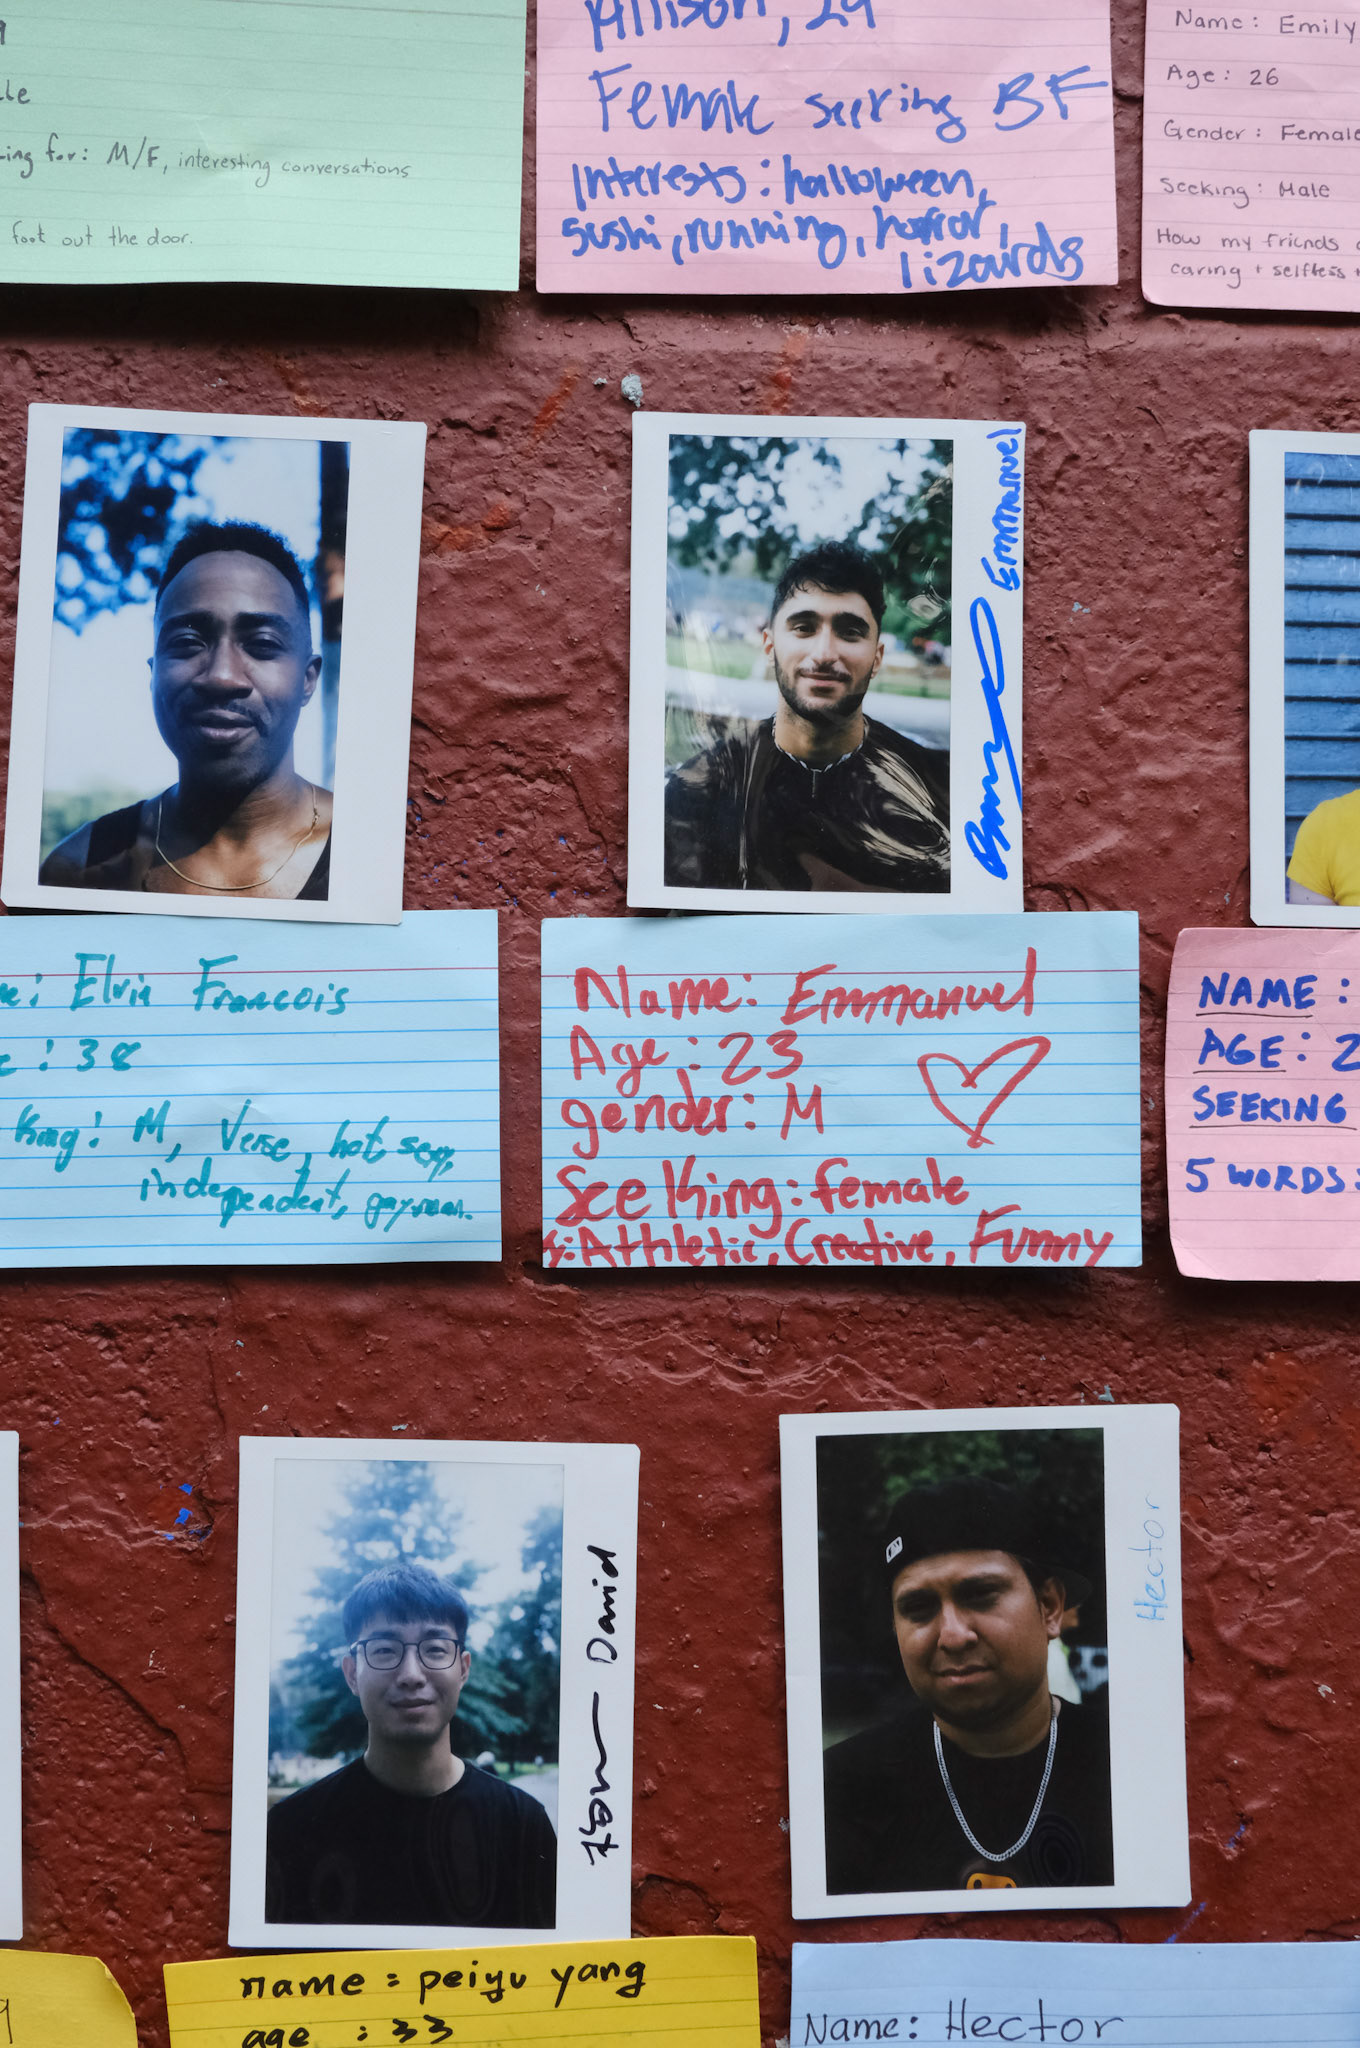 M/F, interesting conversations
foot out the door.
Allison, 29
Female seeking BF
Interests: halloween,
sushi, running, horror,
lizards
Name: Emily
Age: 26
Gender: Female
Seeking: Male
How my friends
caring + selfless +
Emmanuel
Elvin Francois
: 38
King: M, Verse, hot sexy,
independent, gay man.
Name: Emmanuel
Age: 23
gender: M
SeeKing: female
Athletic, Creative, Funny
NAME:
AGE: 2
SEEKING
5 WORDS:
David
Hector
name: peiyu yang
age : 33
Name: Hector